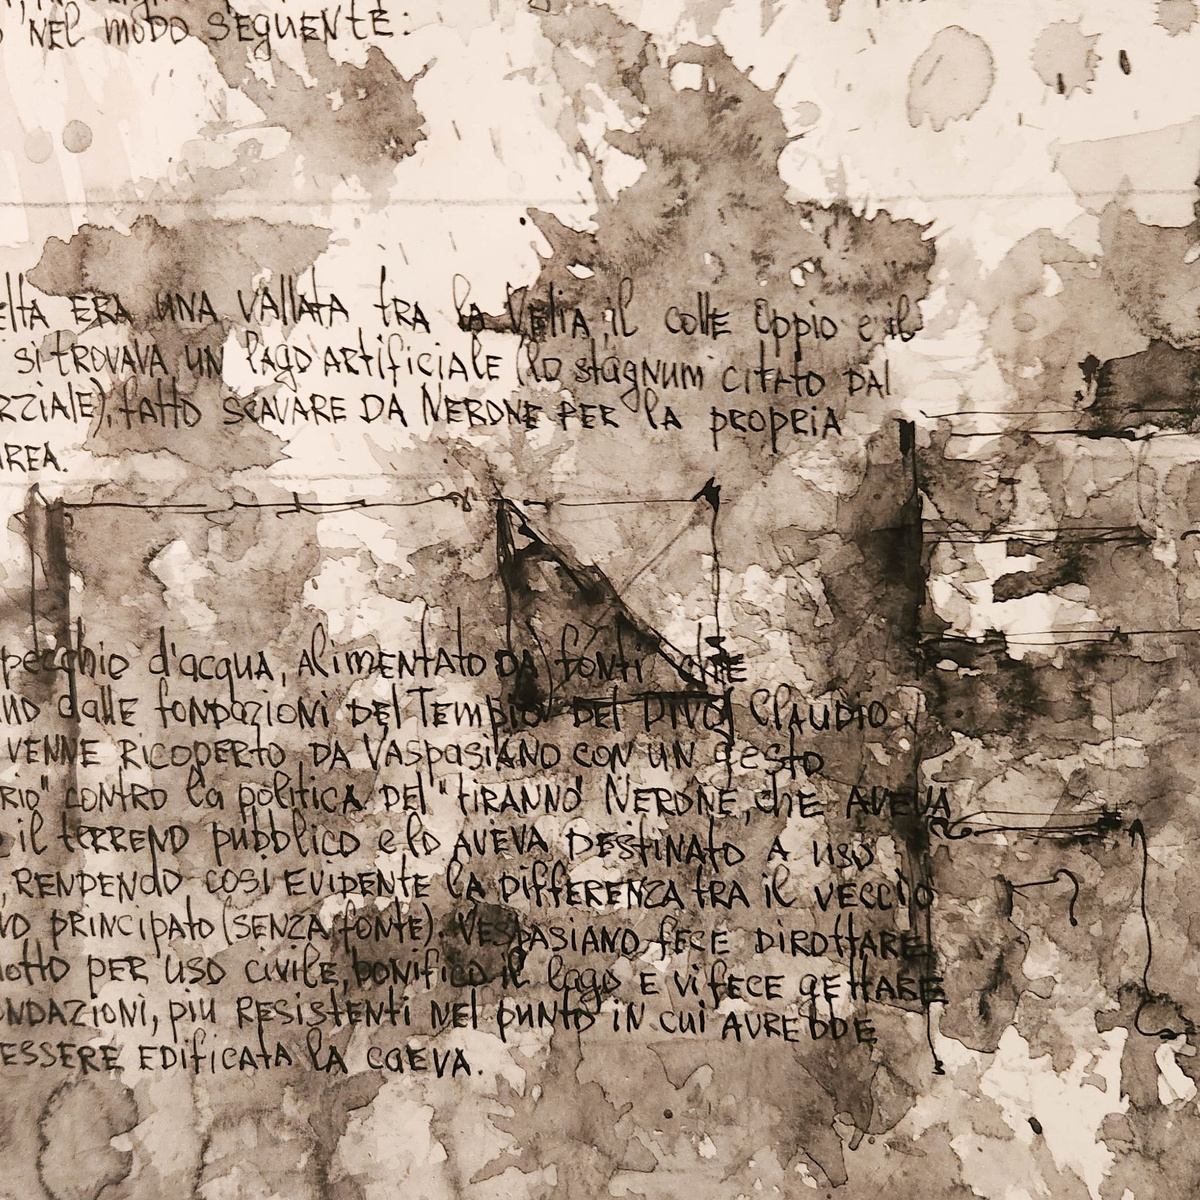 NEL MODO SEGUENTE:
ELTA ERA UNA VALLATA TRA la VELIA, il COLLE OPPIO e il
SI TROVAVA UN LAGO ARTIFICIALE (LO STAGNUM CITATO DAL
RZIALE), FATTO SCAVARE DA NERONE PER LA PROPRIA
AREA.
PECCHIO D'ACQUA, ALIMENTATO DA FONTI CHE
ANO DALLE FONDAZIONI DEL TEMPIO DEL DIVO CLAUDIO
VENNE RICOPERTO DA VASPASIANO CON UN GESTO
RIO" CONTRO LA POLITICA DEL "TIRANNO" NERONE, CHE AVEVA
IL TERRENO PUBBLICO E LO AVEVA DESTINATO A USO
, RENDENDO COSI EVIDENTE LA DIFFERENZA TRA IL VECCIO
VO PRINCIPATO (SENZA FONTE). VESPASIANO FECE DIROTTARE
DOTTO PER USO CIVILE, BONIFICO IL LAGO E VI FECE GETTARE
ONDAZIONI, PIU RESISTENTI NEL PUNTO IN CUI AVREBBE
ESSERE EDIFICATA LA CAEVA.